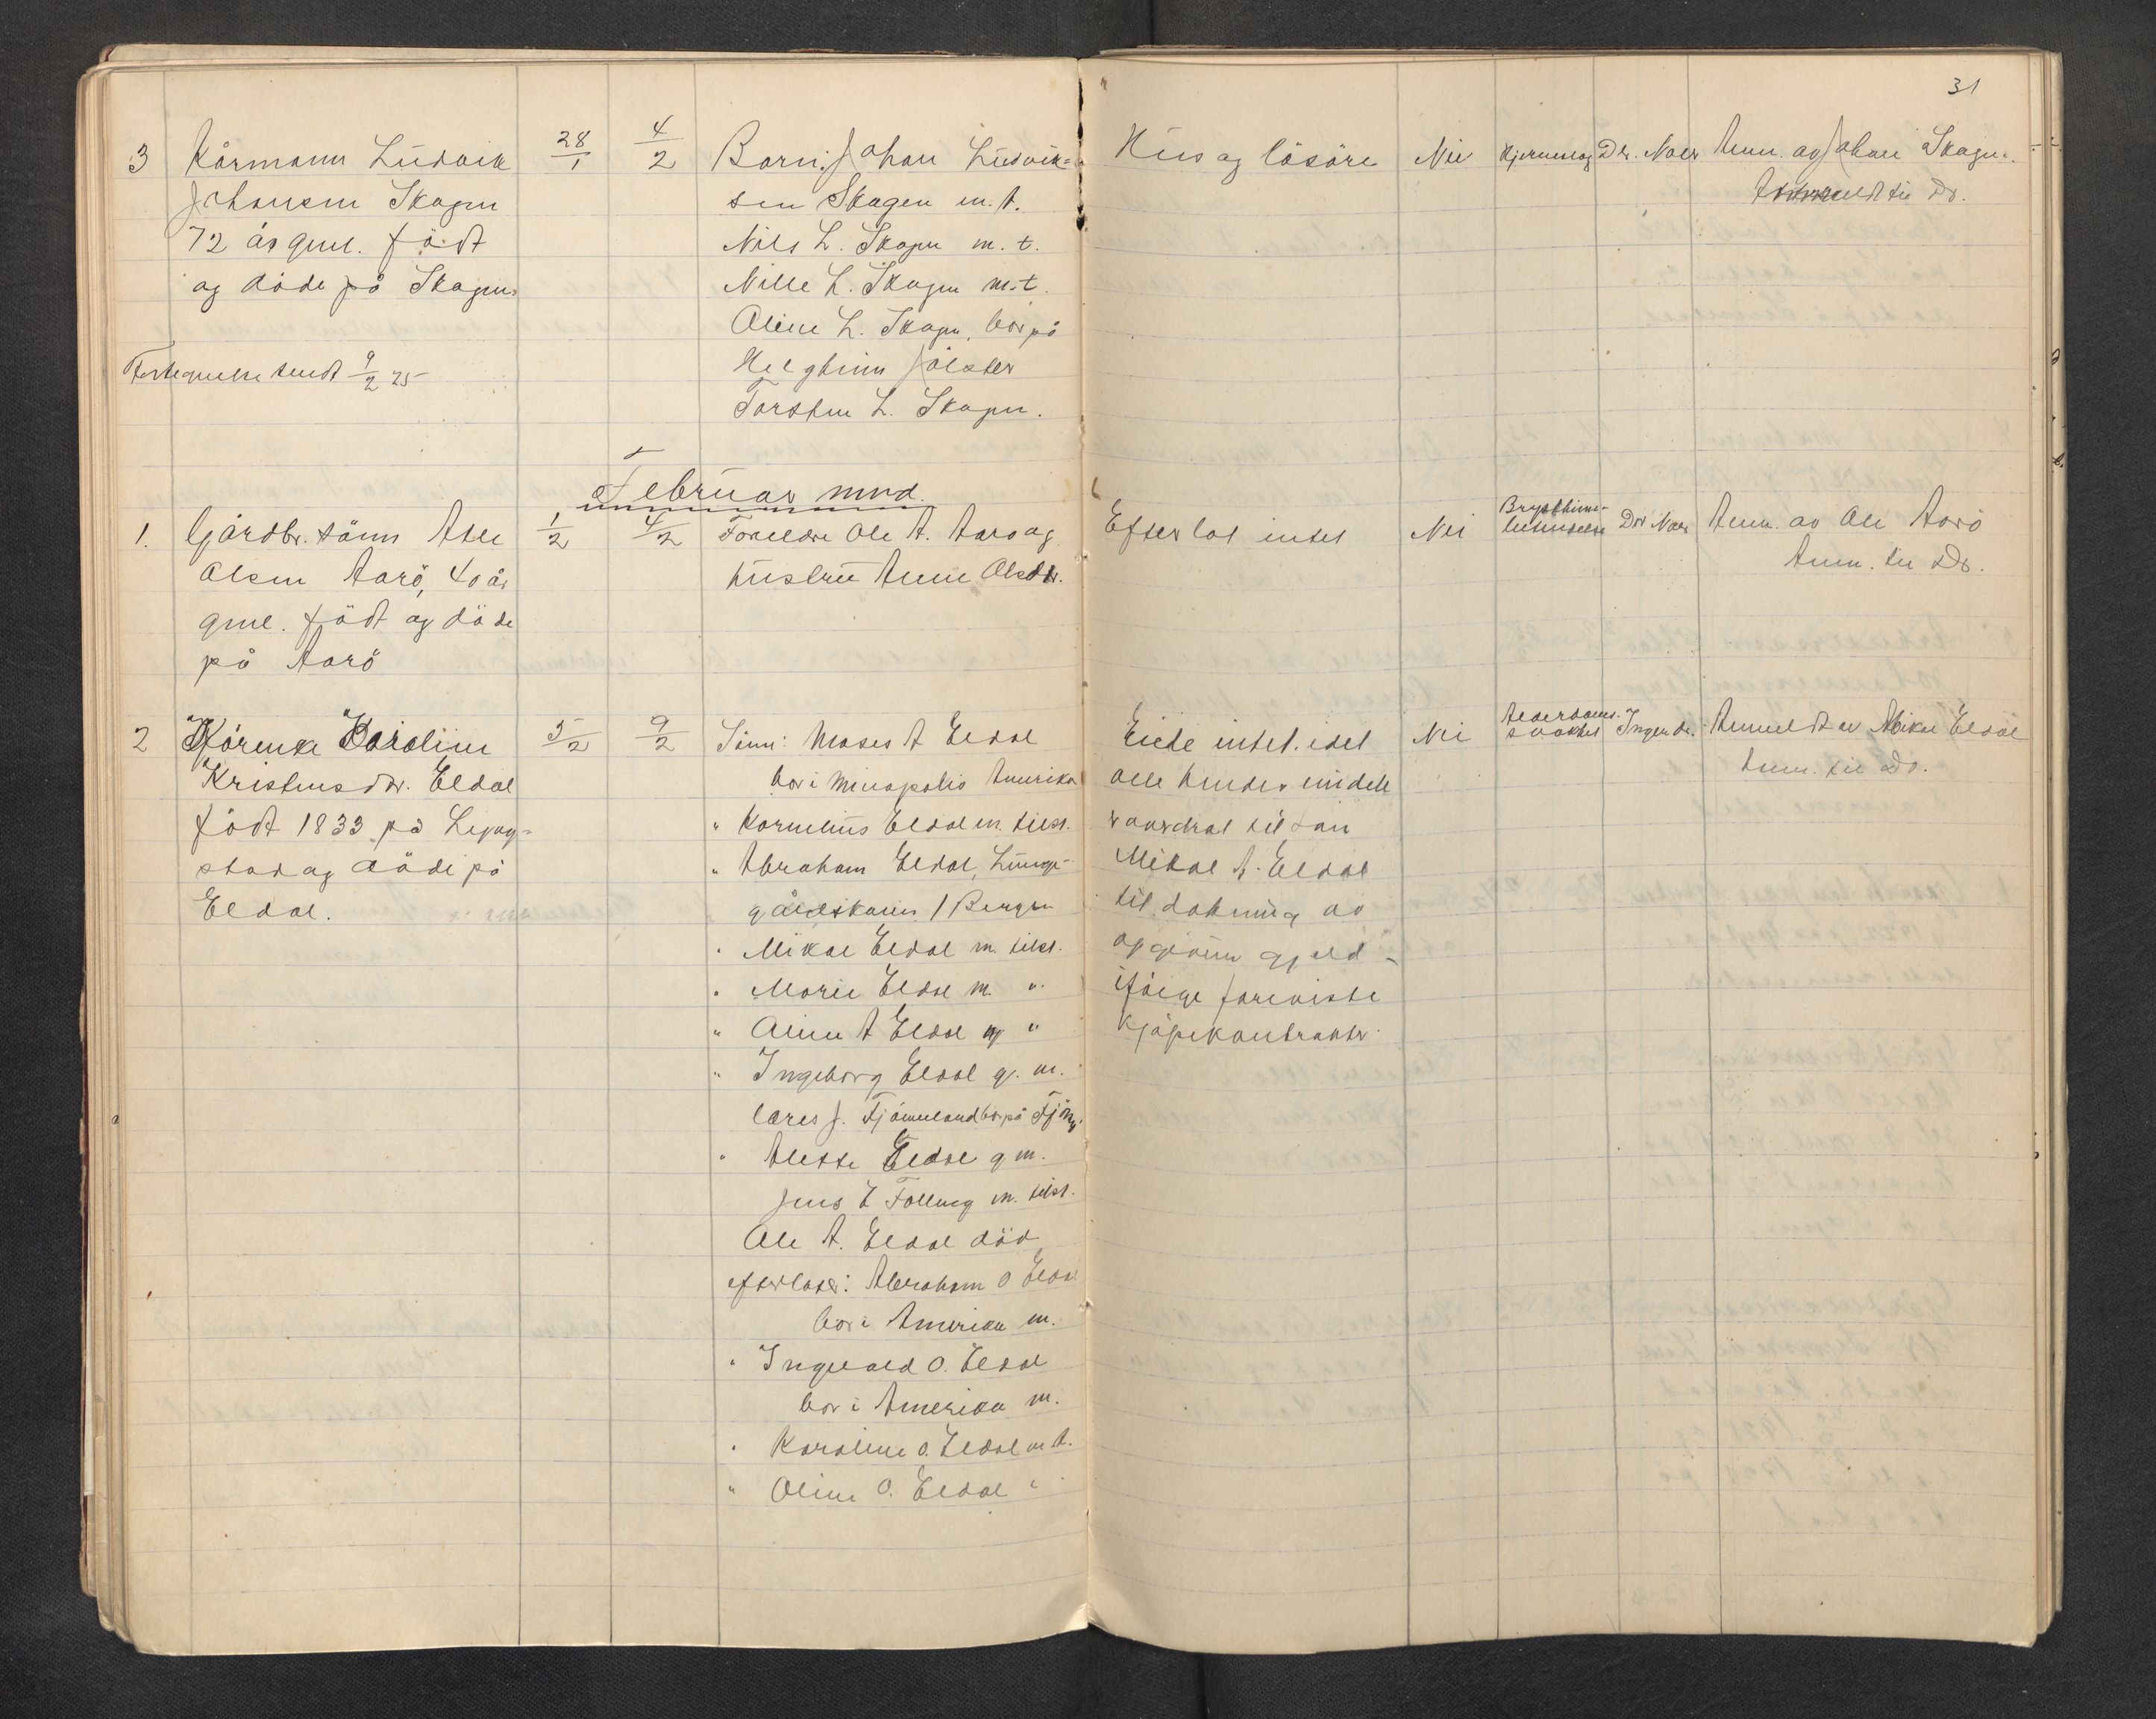 31
3 Kårmann Ludvik
Johansen Skagen
72 år gml. født
og døde på Skagen
Fortegnelse sendt 9/2 25
28/1
4/2
Barn: Johan Ludvik-
sen Skagen m. t.
Nils L. Skagen m. t.
Nille L. Skagen m. t.
Oline L. Skagen, bor på
Helgheim Jølster
Torsten L. Skagen.
Hus og løsøre
Nei
Hjerneslag
Dr. Naer
Anm. av Johan Skagen.
Anmeldt til Dr.
Februar mnd.
1. Gårdbr. sønn Atle
Olsen Aarø, 40 år
gml. født og døde
på Aarø
1/2
4/2
Foreldre Ole A. Aarø og
hustru Anne Olsdtr.
Efterlot intet
Nei
Brysthinne-
betendelse
Dr. Naer
Anm. av Ole Aarø
Anm. til Dr.
2 Kårenke Karoline
Kristensdtr. Eldal
født 1833 på
og døde på
Eldal.
5/2
9/2
Sønn: Moses A Eldal
bor i Minapolis Amerika
" Kornelius Eldal m. tilst.
" Abraham Eldal, Lunge-
gårdskaien / Bergen
" Mikal Eldal m. tilst.
" Marie Eldal m. "
" Oline A Eldal m "
" Ingeborg Eldal g. m.
Lares J. Fjørneland bor på
" Alette Eldal g m.
Jens E Folleng m. tilst.
Ole A. Eldal død
efterlater: Abraham O Eldal
bor i Amerika m.
" Ingvald O. Eldal
bor i Amerika m.
" Karoline O. Eldal m t.
" Oline O. Eldal "
Eide intet. idet
alle hendes midele
overdrat til søn
Mikal A. Eldal
til dækning av
opgiven gjæld
ifølge foreviste
kjøpekontrakter.
Nei
Alderdoms-
svakhet
Ingen dr.
Anmeldt av Mikal Eldal
Anm. til Dr.